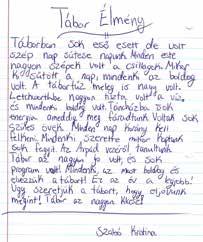 Tábor Élmény
Táborban sok eső esett de volt
szép nap sütése napunk. Minden este
nagyon szépek volt a csillagok. Mikor
kisütött a nap, mindenki az boldog
volt. A tábortűz meleg is nagy volt.
Letchworthbe nagyon tiszta volt a víz,
és mindenki boldog volt. Táncházba sok
energia ameddig meg fáradtunk. Voltak sok
szülés évek. Minden nap korán kell
felkelni. Mindenki szerette mikor kaptunk
sok fagyit. Az Árpád vezérről tanultunk.
Tábor az nagyon jó volt, és sok
program volt. Mindenki, az most boldog és
élvezzük a tábort! Ez az év a legjobb!
Úgy szeretjük a tábort, hogy eljövünk
megint! Tábor az nagyon klassz!
Szabó Krisztina